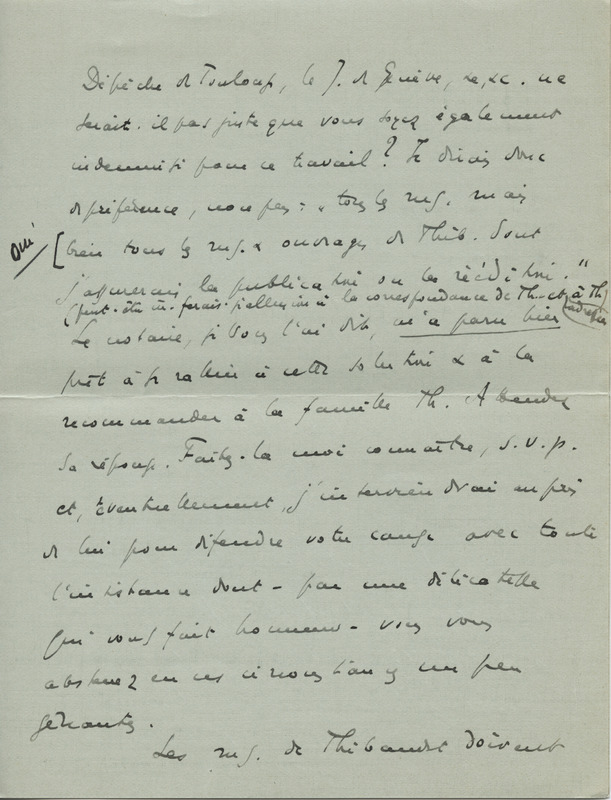 Dépêche de Toulouse, le J. de Genève, &, &c. ne
serait-il pas juste que vous soyez également
indemnisé pour ce travail? Je dirais donc
de préférence, non pas: "tous les mss. mais
oui
[bien tous les mss. & ouvrages de Thib. dont
j'assurerais la publication ou la réédition."
(peut-être m. ferais-j' allusion à la correspondance de Th. et à Th)
adressée
Le notaire, je vous l'ai dit, m'a paru bien
prêt à se rallier à cette solution & à la
recommander à la famille Th. Attendez
sa réponse. Faites-la moi connaître, s.v.p.
et, éventuellement, j'interviendrai auprès
de lui pour défendre votre cause avec toute
l'insistance dont - par une délicatesse
qui vous fait honneur - vous vous
abstenez en ces circonstances un peu
gênantes.
Les mss. de Thibaudet doivent